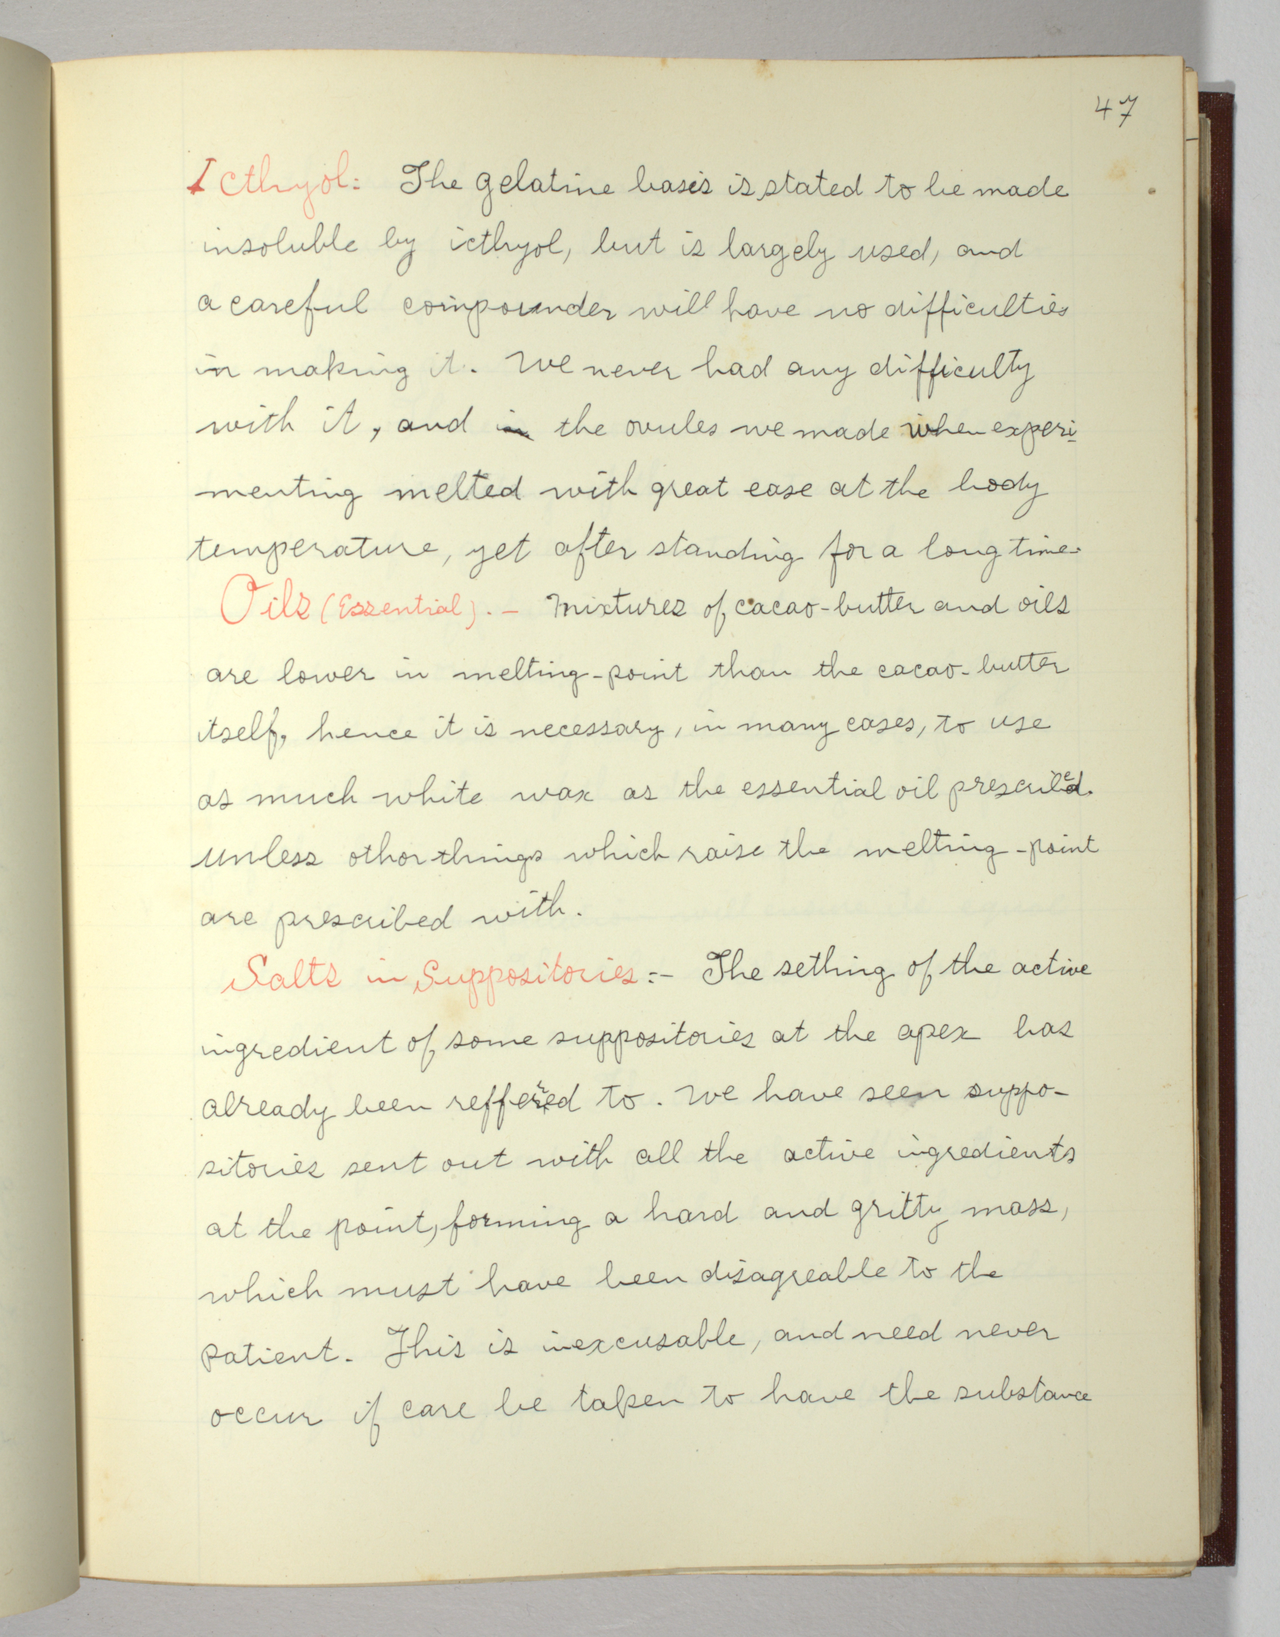 47
Icthyol: The gelatine basis is stated to be made
insoluble by icthyol, but is largely used, and
a careful compounder will have no difficulties
in making it. We never had any difficulty
with it, and in the ovules we made when experi-
menting melted with great ease at the body
temperature, yet after standing for a long time.
Oils (Essential). - Mixtures of cacao-butter and oils
are lower in melting-point than the cacao-butter
itself, hence it is necessary, in many cases, to use
as much white wax as the essential oil prescribed.
unless othor things which raise the melting-point
are prescribed with.
Salts in Suppositories:- The sething of the active
ingredient of some suppositories at the apex has
already been refferred to. We have seen suppo-
sitories sent out with all the active ingredients
at the point, forming a hard and gritty mass,
which must have been disagreable to the
patient. This is inexcusable, and need never
occur if care be taken to have the substance